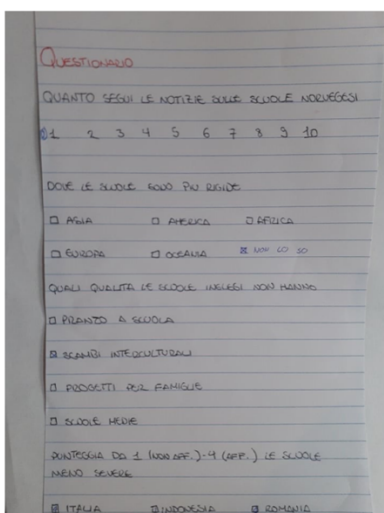 QUESTIONARIO
QUANTO SEGUI LE NOTIZIE SULLE SCUOLE NORVEGESI
1 2 3 4 5 6 7 8 9 10
DOVE LE SCUOLE SONO PIÙ RIGIDE
□ ASIA □ AMERICA □ AFRICA
□ EUROPA □ OCEANIA ☒ NON LO SO
QUALI QUALITÀ LE SCUOLE INGLESI NON HANNO
□ PRANZO A SCUOLA
☒ SCAMBI INTERCULTURALI
□ PROGETTI PER FAMIGLIE
□ SCUOLE MEDIE
PUNTEGGIA DA 1 (NON AFF.)-4 (AFF.) LE SCUOLE
MENO SEVERE
ITALIA INDONESIA ROMANIA